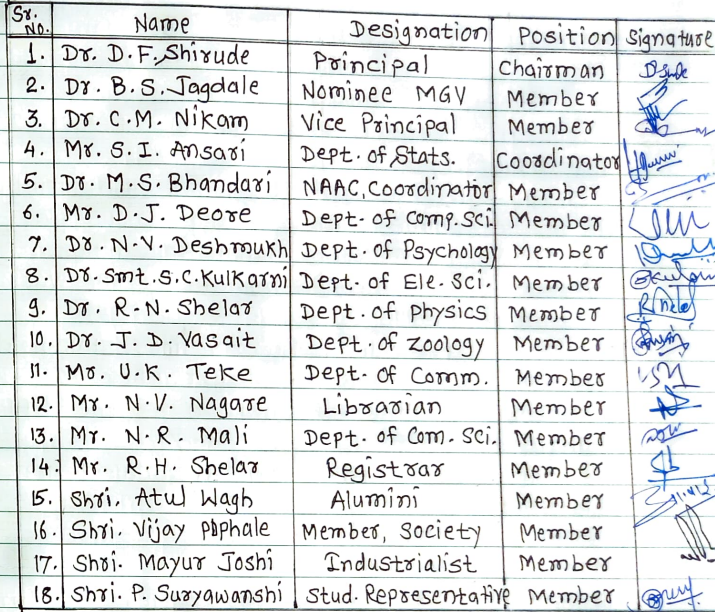 Sr. No. Name Designation Position Signature
1. Dr. D.F. Shirude Principal Chairman
2. Dr. B.S. Jagdale Nominee MGV Member
3. Dr. C.M. Nikam Vice Principal Member
4. Mr. S.I. Ansari Dept. of Stats. Coordinator
5. Dr. M.S. Bhandari NAAC, Coordinator Member
6. Mr. D.J. Deore Dept. of Comp. Sci. Member
7. Dr. N.V. Deshmukh Dept. of Psychology Member
8. Dr. Smt. S.C. Kulkarni Dept. of Ele. Sci. Member
9. Dr. R.N. Shelar Dept. of Physics Member
10. Dr. J.D. Vasait Dept. of Zoology Member
11. Mr. U.K. Teke Dept. of Comm. Member
12. Mr. N.V. Nagare Librarian Member
13. Mr. N.R. Mali Dept. of Com. Sci. Member
14. Mr. R.H. Shelar Registrar Member
15. Shri. Atul Wagh Alumini Member
16. Shri. Vijay Member, Society Member
17. Shri. Mayur Joshi Industrialist Member
18. Shri. P. Suryawanshi Stud. Representative Member